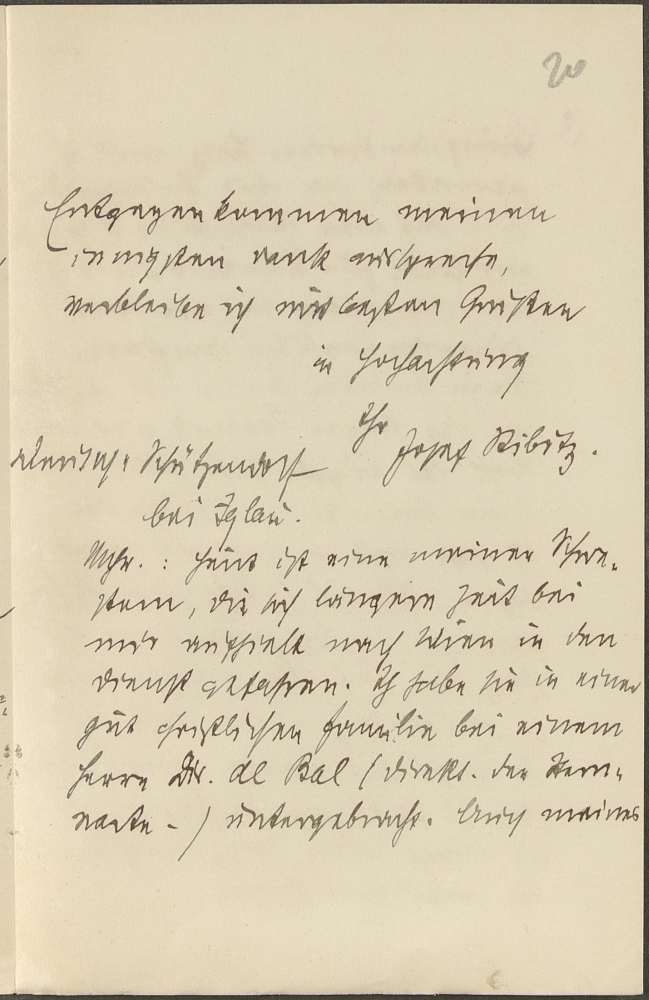 20
Entgegenkommen meinen
innigsten Dank ausspreche,
verbleibe ich mit besten Grüßen
in Hochachtung
Ihr
Josef Kibitz.
Deutsch-Schützendorf
bei Iglau.
Ngr. : Heut ist eine meiner Schwe-
stern, die sich längere Zeit bei
mir aufhielt nach Wien in den
Dienst gefahren. Ich habe sie in einer
gut christlichen Familie bei einem
Herrn Dr. de Bal (Direkt. der Stern-
warte -) untergebracht. Auch meines